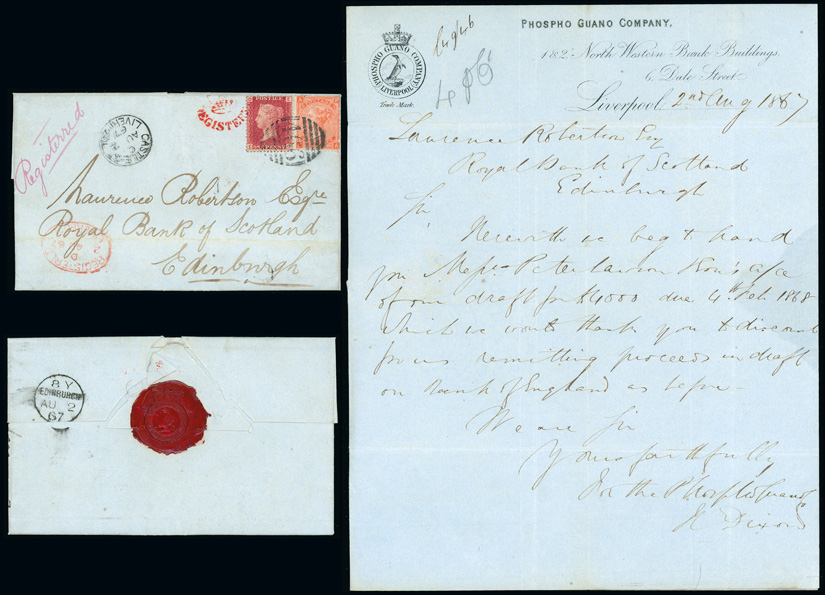 Registered
CASTLE ST
AU 2
67
LIVERPOOL
REGISTERED
POSTAGE
Laurence Robertson Esqre
Royal Bank of Scotland
Edinburgh
REGISTERED
8Y
EDINBURGH
AU 2
67
PHOSPHO GUANO COMPANY
LIVERPOOL
Trade Mark.
PHOSPHO GUANO COMPANY.
182 North Western Bank Buildings.
6, Dale Street
Liverpool, 2nd Aug 1867
Laurence Robertson Esq
Royal Bank of Scotland
Edinburgh
Sir
Herewith we beg to hand
you Messrs Peter Lawson & Son's a/ce
of our draft for £4000 due 4th Feb. 1868
which we would thank you to discount
for us remitting proceeds in draft
on Bank of England as before
We are Sir
Yours faithfully
For the Phospho Guano
Dixon